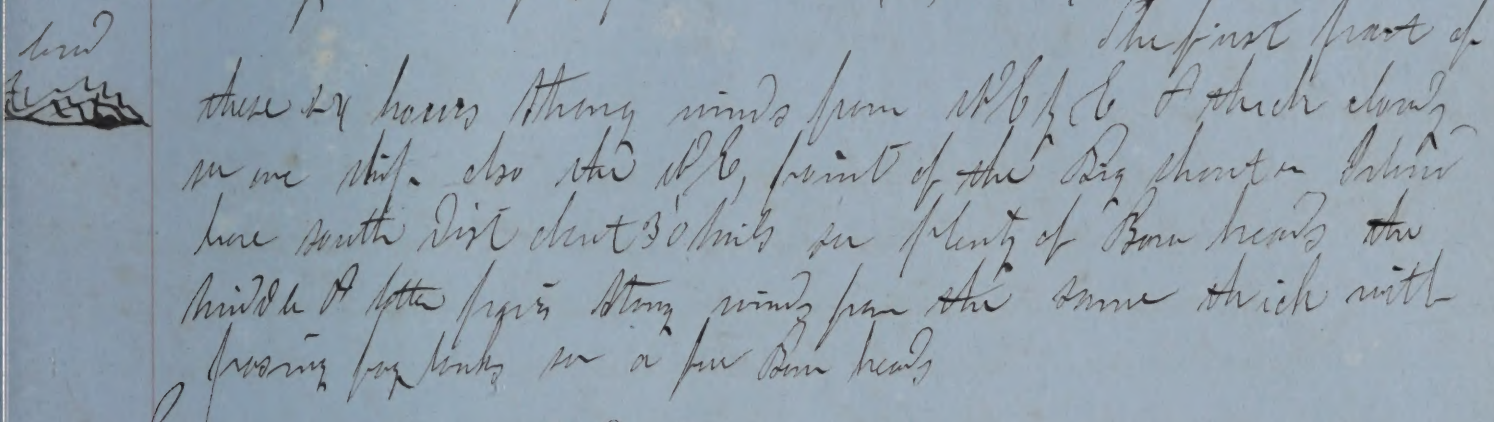 land
The first part of
these 24 hours Strong winds from NE by E & thick cloudy
saw one ship also the NE, point of the Big Shantar Island
bore south Dist about 30 miles saw plenty of Bow heads the
middle & latter parts Strong winds from the same thick with
passing fog banks saw a few Bow heads